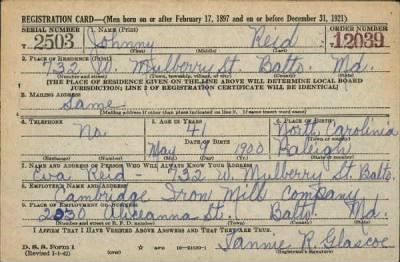 REGISTRATION CARD—(Men born on or after February 17, 1897 and on or before December 31, 1921)
SERIAL NUMBER 1. NAME (Print) ORDER NUMBER
2503 Johnny Reid 12039
(First) (Middle) (Last)
2. PLACE OF RESIDENCE (Print)
732 W. Mulberry St. Balto. Md.
(Number and street) (Town, township, village, or city) (County) (State)
[THE PLACE OF RESIDENCE GIVEN ON THE LINE ABOVE WILL DETERMINE LOCAL BOARD
JURISDICTION; LINE 2 OF REGISTRATION CERTIFICATE WILL BE IDENTICAL]
3. MAILING ADDRESS
Same
[Mailing address if other than place indicated on line 2. If same insert word same]
4. TELEPHONE 5. AGE IN YEARS 6. PLACE OF BIRTH
No. 41 North Carolina
DATE OF BIRTH (Town or county)
May 9 1900 Raleigh
(Exchange) (Number) (Mo.) (Day) (Yr.) (State or country)
7. NAME AND ADDRESS OF PERSON WHO WILL ALWAYS KNOW YOUR ADDRESS
Eva Reid - 732 W. Mulberry St. Balto.
8. EMPLOYER'S NAME AND ADDRESS
Cambridge Iron Mills Company
9. PLACE OF EMPLOYMENT OR BUSINESS
2030 Aliceanna St. Balto. Md.
(Number and street or R. F. D. number) (Town) (County) (State)
I AFFIRM THAT I HAVE VERIFIED ABOVE ANSWERS AND THAT THEY ARE TRUE.
D. S. S. Form 1 (over) Fannie R. Glascoe
(Revised 1-1-42) (Registrant's signature)